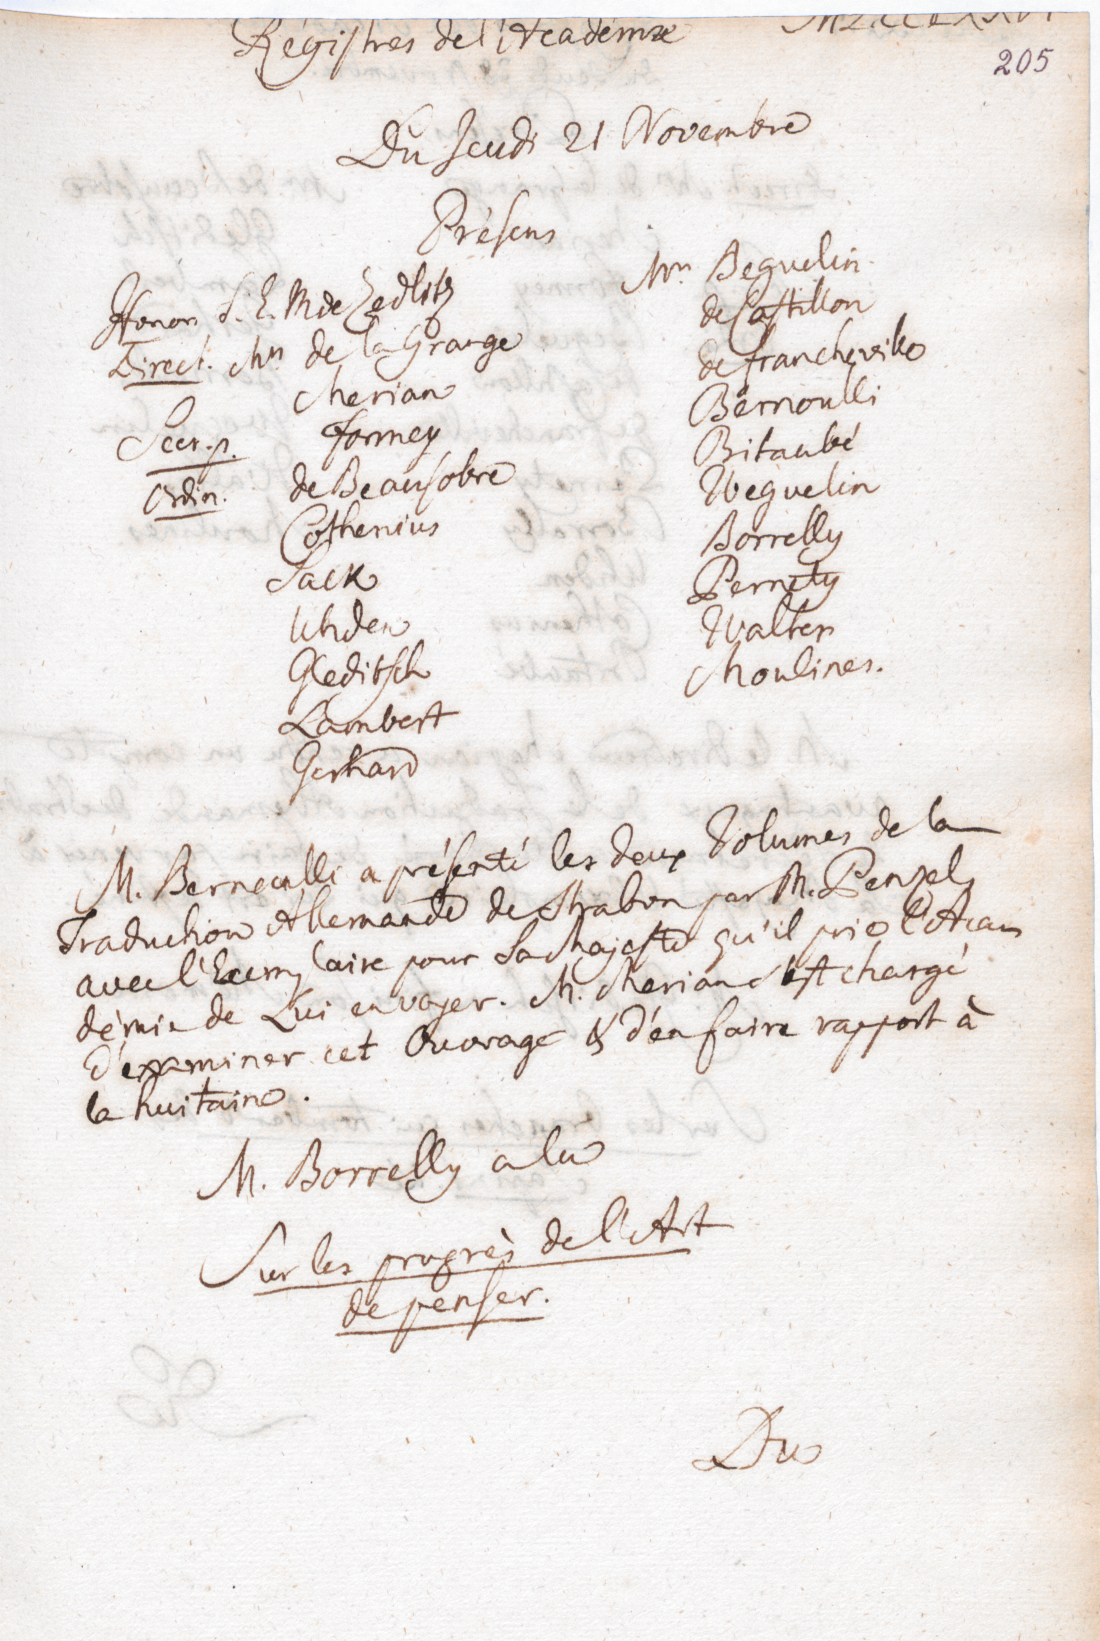 Régistres de l'Academie MDCCLXXVI
205
Du Jeudi 21 Novembre
Présens
Honor. S. E. M de Zedlitz
Direct. Mrs de la Grange
Merian
Secr. p. Formey
Ordin. de Beausobre
Cothenius
Sack
Uhden
Gleditsch
Lambert
Gerhard
Mrs Beguelin
de Castillon
de francheville
Bernoulli
Bitaubé
Weguelin
Borrelly
Pernety
Walter
Moulines.
M. Bernoulli a présenté les deux Volumes de la
Traduction Allemande de Strabon par M. Penzel,
avec l'Exemplaire pour Sa Majesté qu'il prie l'Aca
démie de Lui envoyer. M. Merian s'est chargé
d'examiner cet Ouvrage & d'en faire rapport à
la huitaine.
M. Borrelly a lu
Sur les progrès de l'Art
de penser.
Du